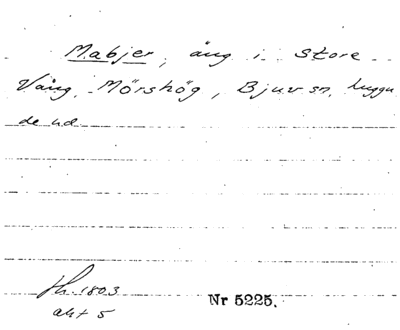 Mabjer, äng i Store
Vång, Mörshög, Bjuv sn, Luggu
de hd
h. 1803
akt 5
Nr 5225.